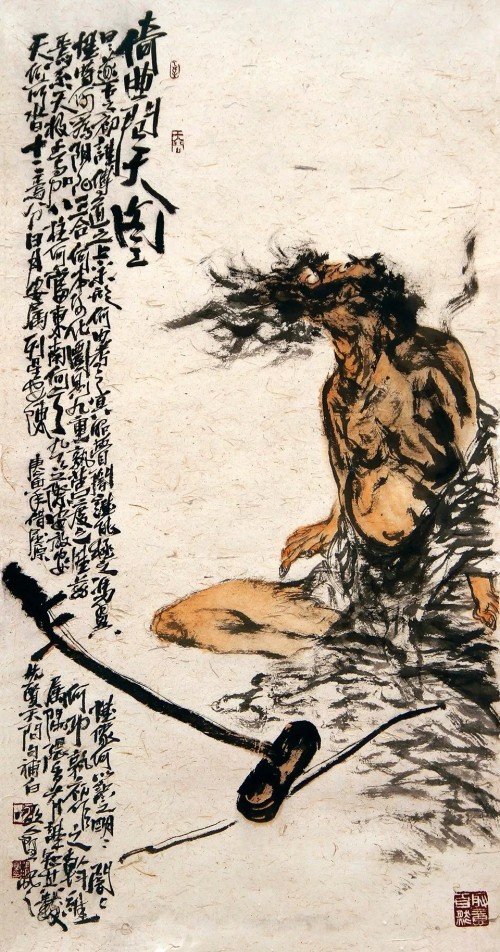 倚曲問天圖
曰遂古之初誰傳道之上下未形何由考之冥昭瞢闇誰能極之馮翼
惟時何為阴阳三合何本何化圜則九重孰營度之惟茲
焉系天极焉加八柱何當東南何虧九天之際安放安
天何所沓十二焉分日月安属列星安陳
庚寅年借屈原
惟像何以識之明明闇闇
何功孰初作之斡維
属隅隈多有誰知其數
天问句補白